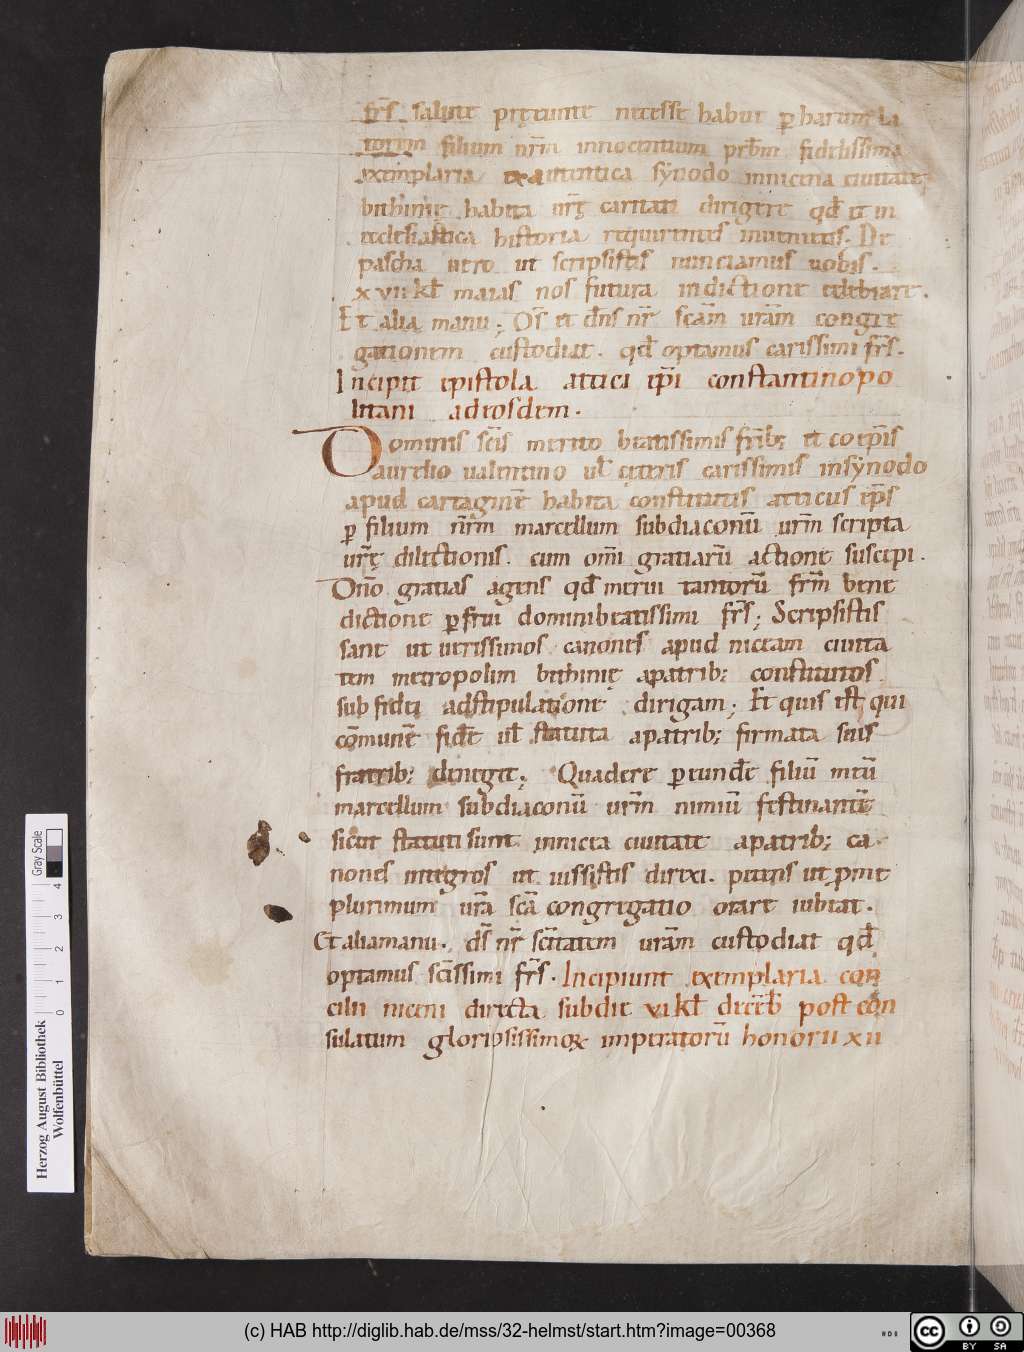 fr̄s salute pręeunte necesse habui ꝑ harum la
torem filium nr̄m innocentium prb̄m fidelissima
exemplaria ex autentica synodo in nicena ciuitate
bithinię habita ur̄ę caritati dirigere qđ et in
ecclesiastica historia requirentes inuenietis. De
pascha uero ut scripsistis nunciamus uobis.
xvii kƚ maias nos futura indictione celebrare.
Et alia manu; Ds̄ et dn̄s nr̄ scām urām congre
gationem custodiat. qđ optamus carissimi fr̄s.
Incipit epistola attici ep̄i constantinopo
litani ad eosdem.
Dominis sc̄is merito beatissimis frīb; et coep̄is
aurelio ualentino uƚ cęteris carissimis in synodo
apud cartaginē habita constitutis atticus ep̄s
ꝑ filium nr̄m marcellum subdiaconū ur̄m scripta
ur̄ę dilectionis. cum omī gratiarū actione suscepi.
Dn̄o gratias agens qđ merui tantorū fr̄m bene
dictione ꝑfrui domini beatissimi fr̄s; Scripsistis
sane ut uerissimos canones apud niceam ciuita
tem metropolim bithinię a patrib; constitutos
sub fidei adstipulatione dirigam; Et quis est qui
cōmunē fidē uƚ statuta a patrib; firmata suis
fratrib; deneget; Quade re ꝑeundē filiū meū
marcellum subdiaconū ur̄m nimiū festinantē
sicut statuti sunt in nicea ciuitate a patrib; ca
nones integros ut iussistis direxi. petens ut ꝓ me
plurimum ur̄a scā congregatio orare iubeat.
Et alia manu. ds̄ nr̄ sc̄itatem urām custodiat qđ
optamus sc̄issimi fr̄s. Incipiunt exemplaria con
cilii niceni directa sub die vi kƚ decēb post con
sulatum gloriosissimoꝝ imperatorū honorii xii
Gray Scale
0 1 2 3 4
Herzog August Bibliothek
Wolfenbüttel
(c) HAB http://diglib.hab.de/mss/32-helmst/start.htm?image=00368
cc BY SA